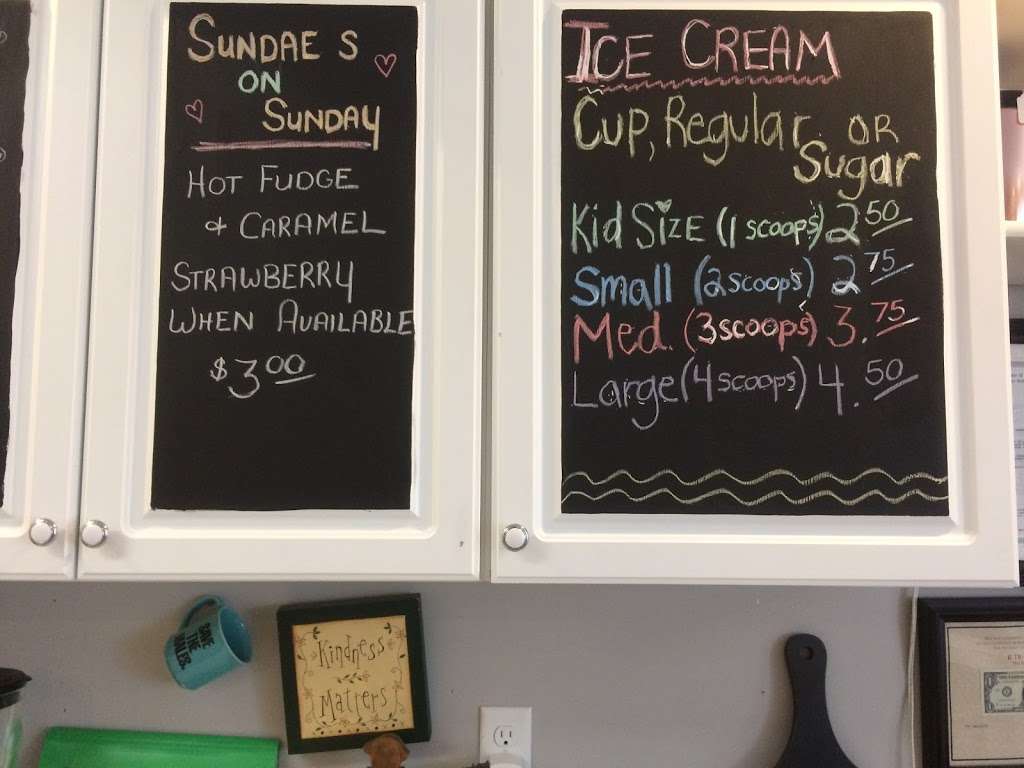 SUNDAE S
ON
SUNDAY
HOT FUDGE
& CARAMEL
STRAWBERRY
WHEN AVAILABLE
$3.00
ICE CREAM
Cup, Regular OR
Sugar
Kid SiZE (1 scoops) 2.50
Small (2 scoops) 2.75
Med. (3 scoops) 3.75
Large (4 scoops) 4.50
SAVE
THE
Kindness
Matters